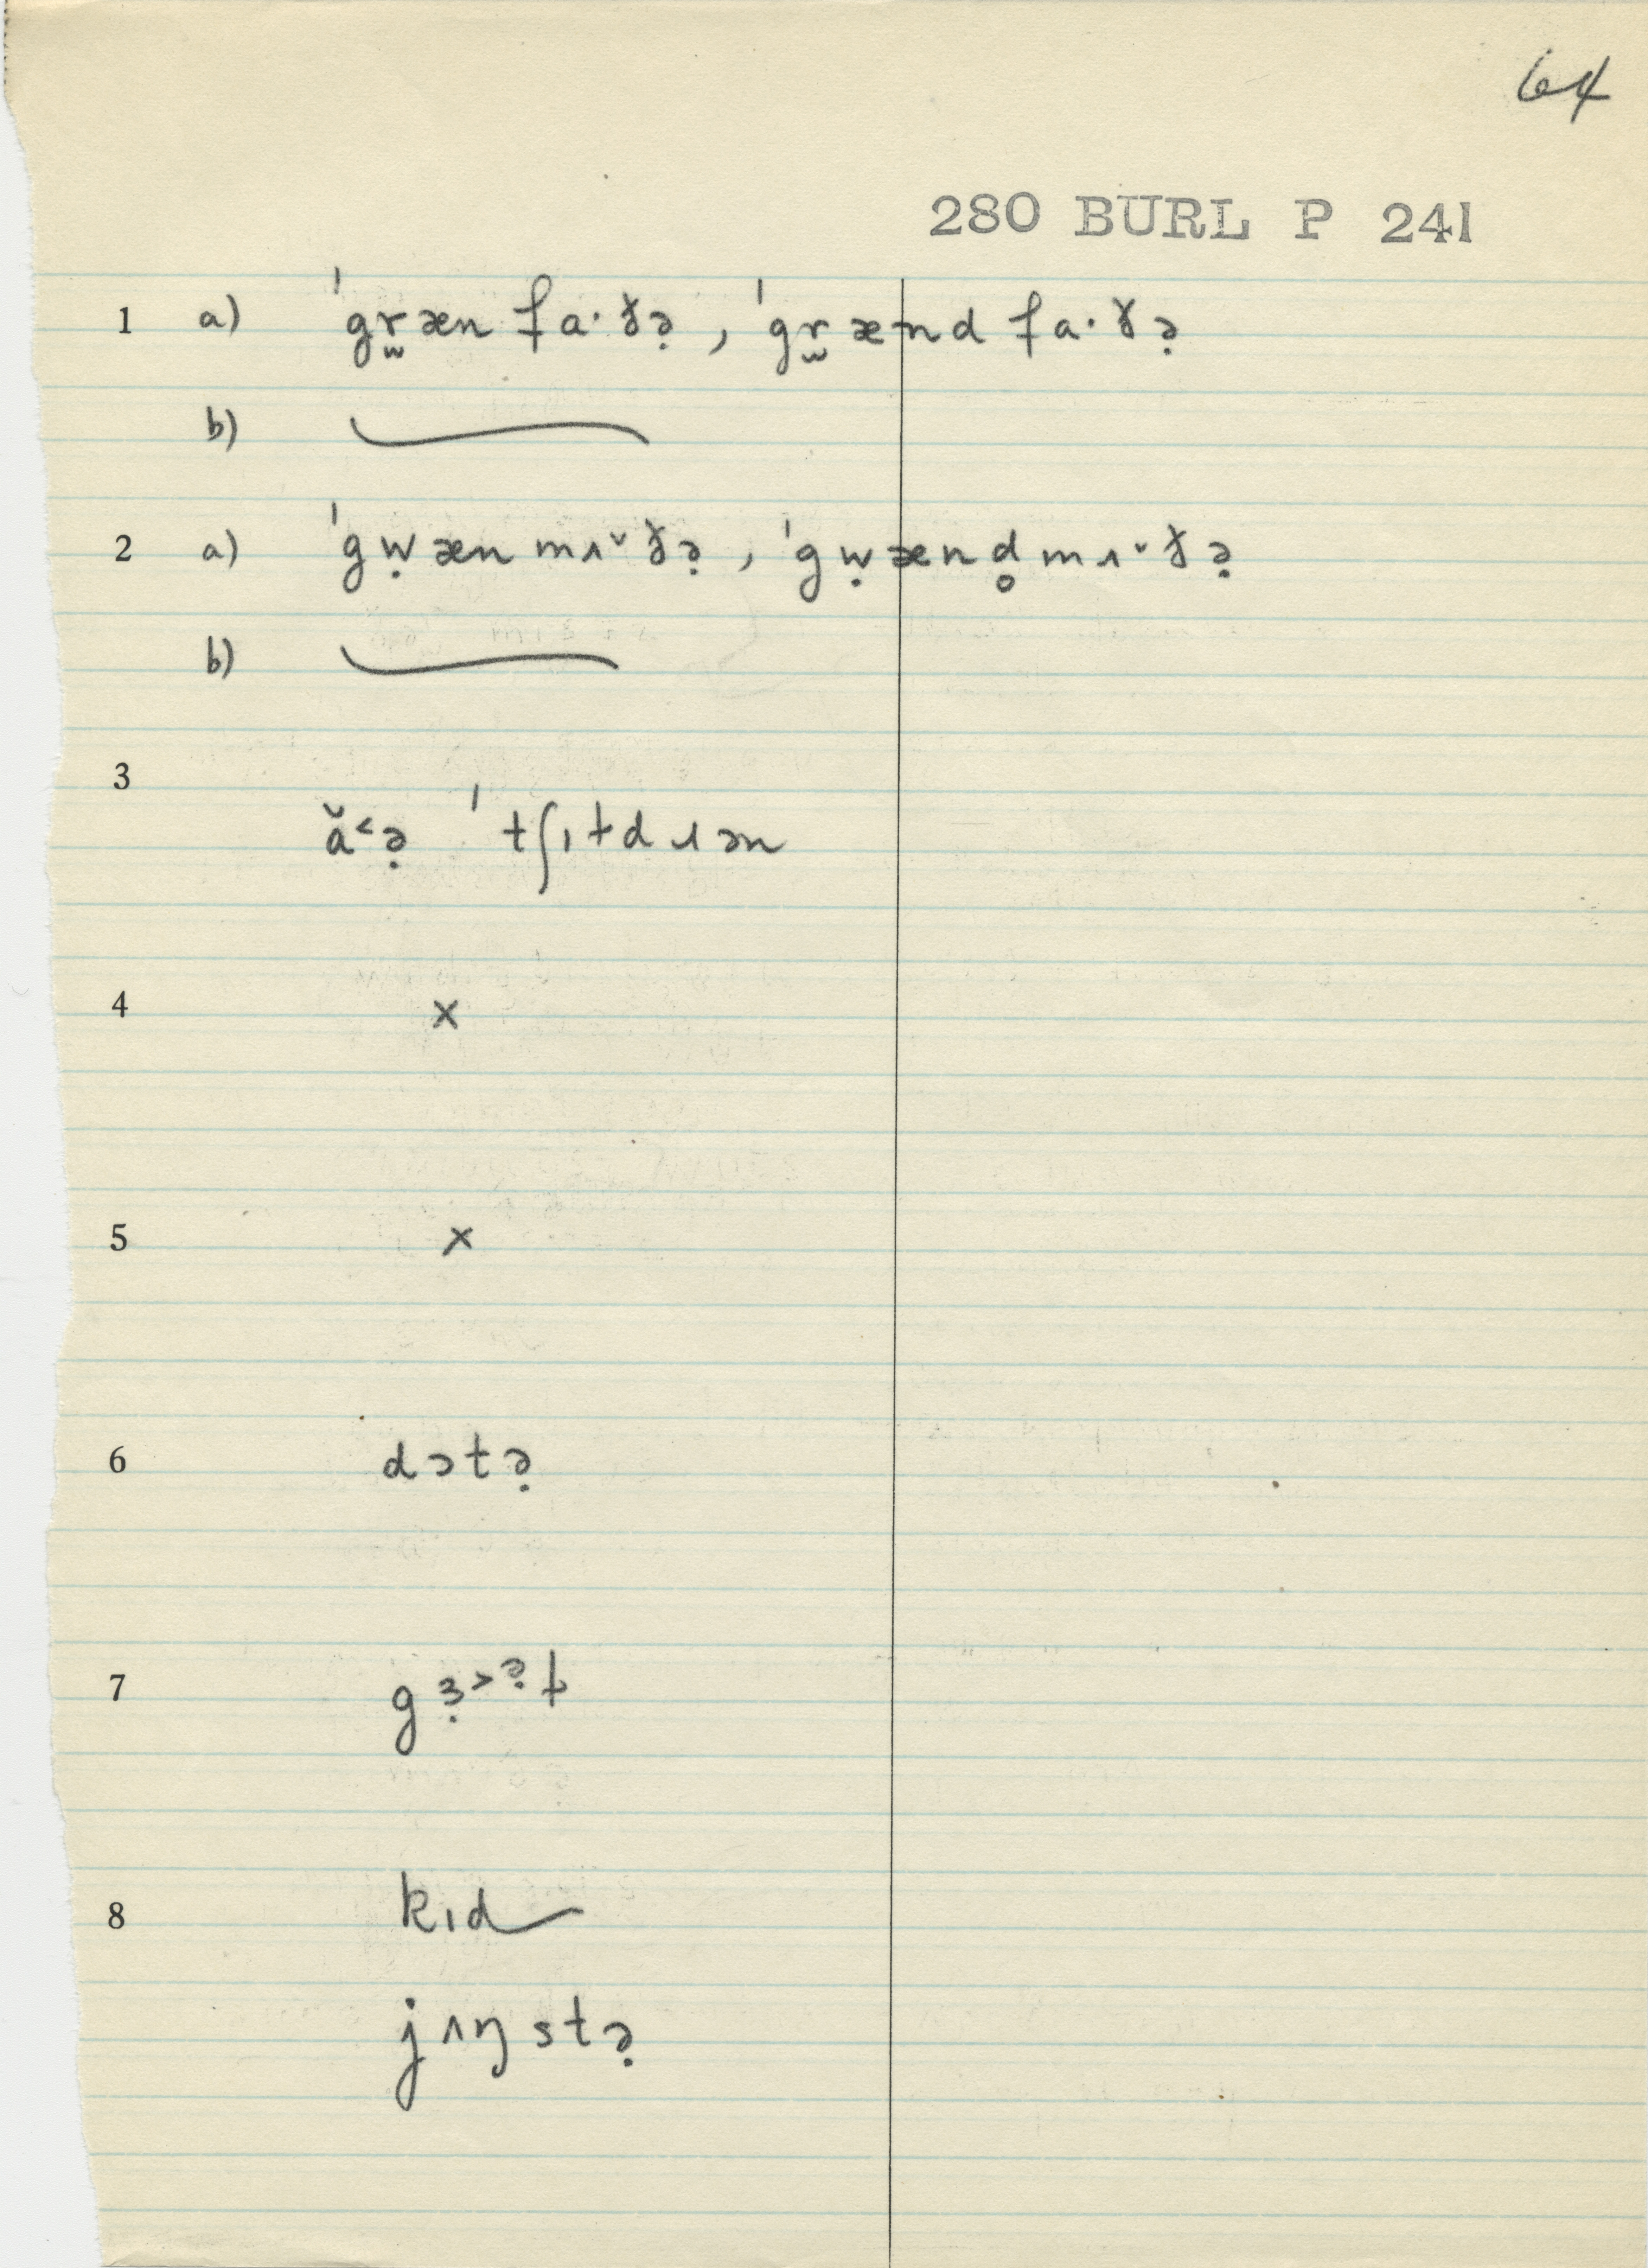 64
280 BURL P 241
1 a) ˈgr̫æn fa·ðə̣, ˈgr̫ænd fa·ðə̣
b)
2 a) ˈgẉæn mʌ˅ðə̣, ˈgẉænd̥ mʌ˅ðə̣
b)
3
ă˂ə̣ ˈtʃɪɫdɹən
4 x
5 x
6 dɔtə̣
7 gɜ̣˃ə̣ɫ
8 kɪd
jʌŋstə̣